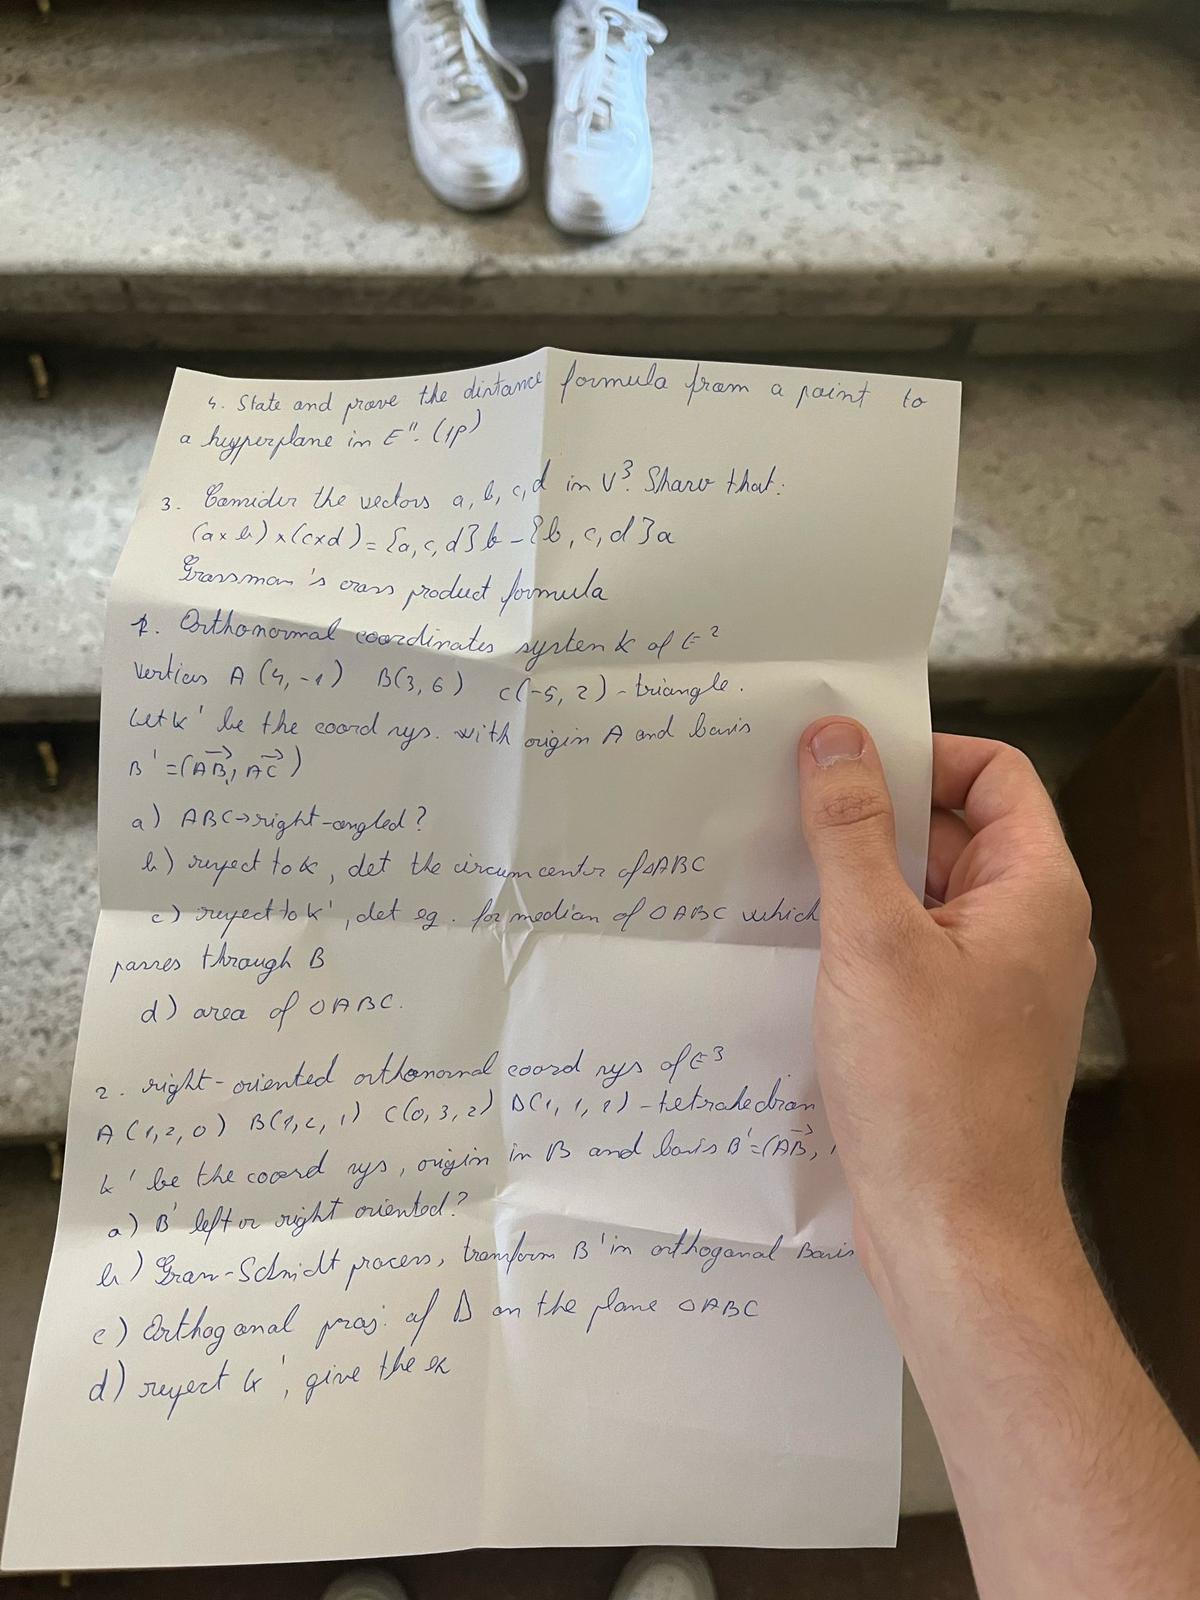 4. State and prove the distance formula from a point to
a hyperplane in Eⁿ. (1p)
3. Consider the vectors a, b, c, d in V³. Show that:
(a×b)×(c×d) = [a, c, d] b - [b, c, d] a
Grassman's cross product formula
1. Orthonormal coordinates system K of E²
Vertices A (4, -1) B(3, 6) C(-5, 2) - triangle.
Let K' be the coord sys. with origin A and basis
B' = (AB, AC)
a) ABC → right-angled?
b) respect to K, det the circumcenter of △ABC
c) respect to K', det eq. for median of △ABC which
passes through B
d) area of △ABC.
2. right-oriented orthonormal coord sys of E³
A (1, 2, 0) C(0, 3, 2) - tetrahedran
K' be the coord sys, origin in B and basis B' = (AB,
a) B' left or right oriented?
b) Gram-Schmidt process, transform B' in orthogonal Basis
c) Orthogonal proj. of D on the plane △ABC
d) respect K', give the